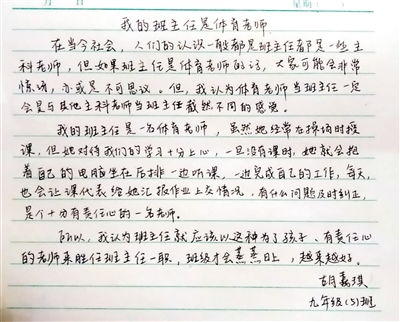 我的班主任是体育老师
在当今社会，人们的认识一般都是班主任都是一些主
科老师，但如果班主任是体育老师的话，大家可能会非常
惊讶，亦或是不可思议。但，我认为体育老师当班主任一定
会是与其他主科老师当班主任截然不同的感觉。
我的班主任是一名体育老师，虽然她经常在操场时授
课，但她对待我们的学习十分上心，一旦没有课时，她就会抱
着自己的电脑坐在后排一边听课，一边完成自己的工作，每天，
也会让课代表给她汇报作业上交情况，有什么问题及时纠正，
是个十分有责任心的一名老师。
所以，我认为班主任就应该以这种为了孩子、有责任心
的老师来胜任班主任一职，班级才会蒸蒸日上，越来越好。
胡嘉琪
九年级(5)班